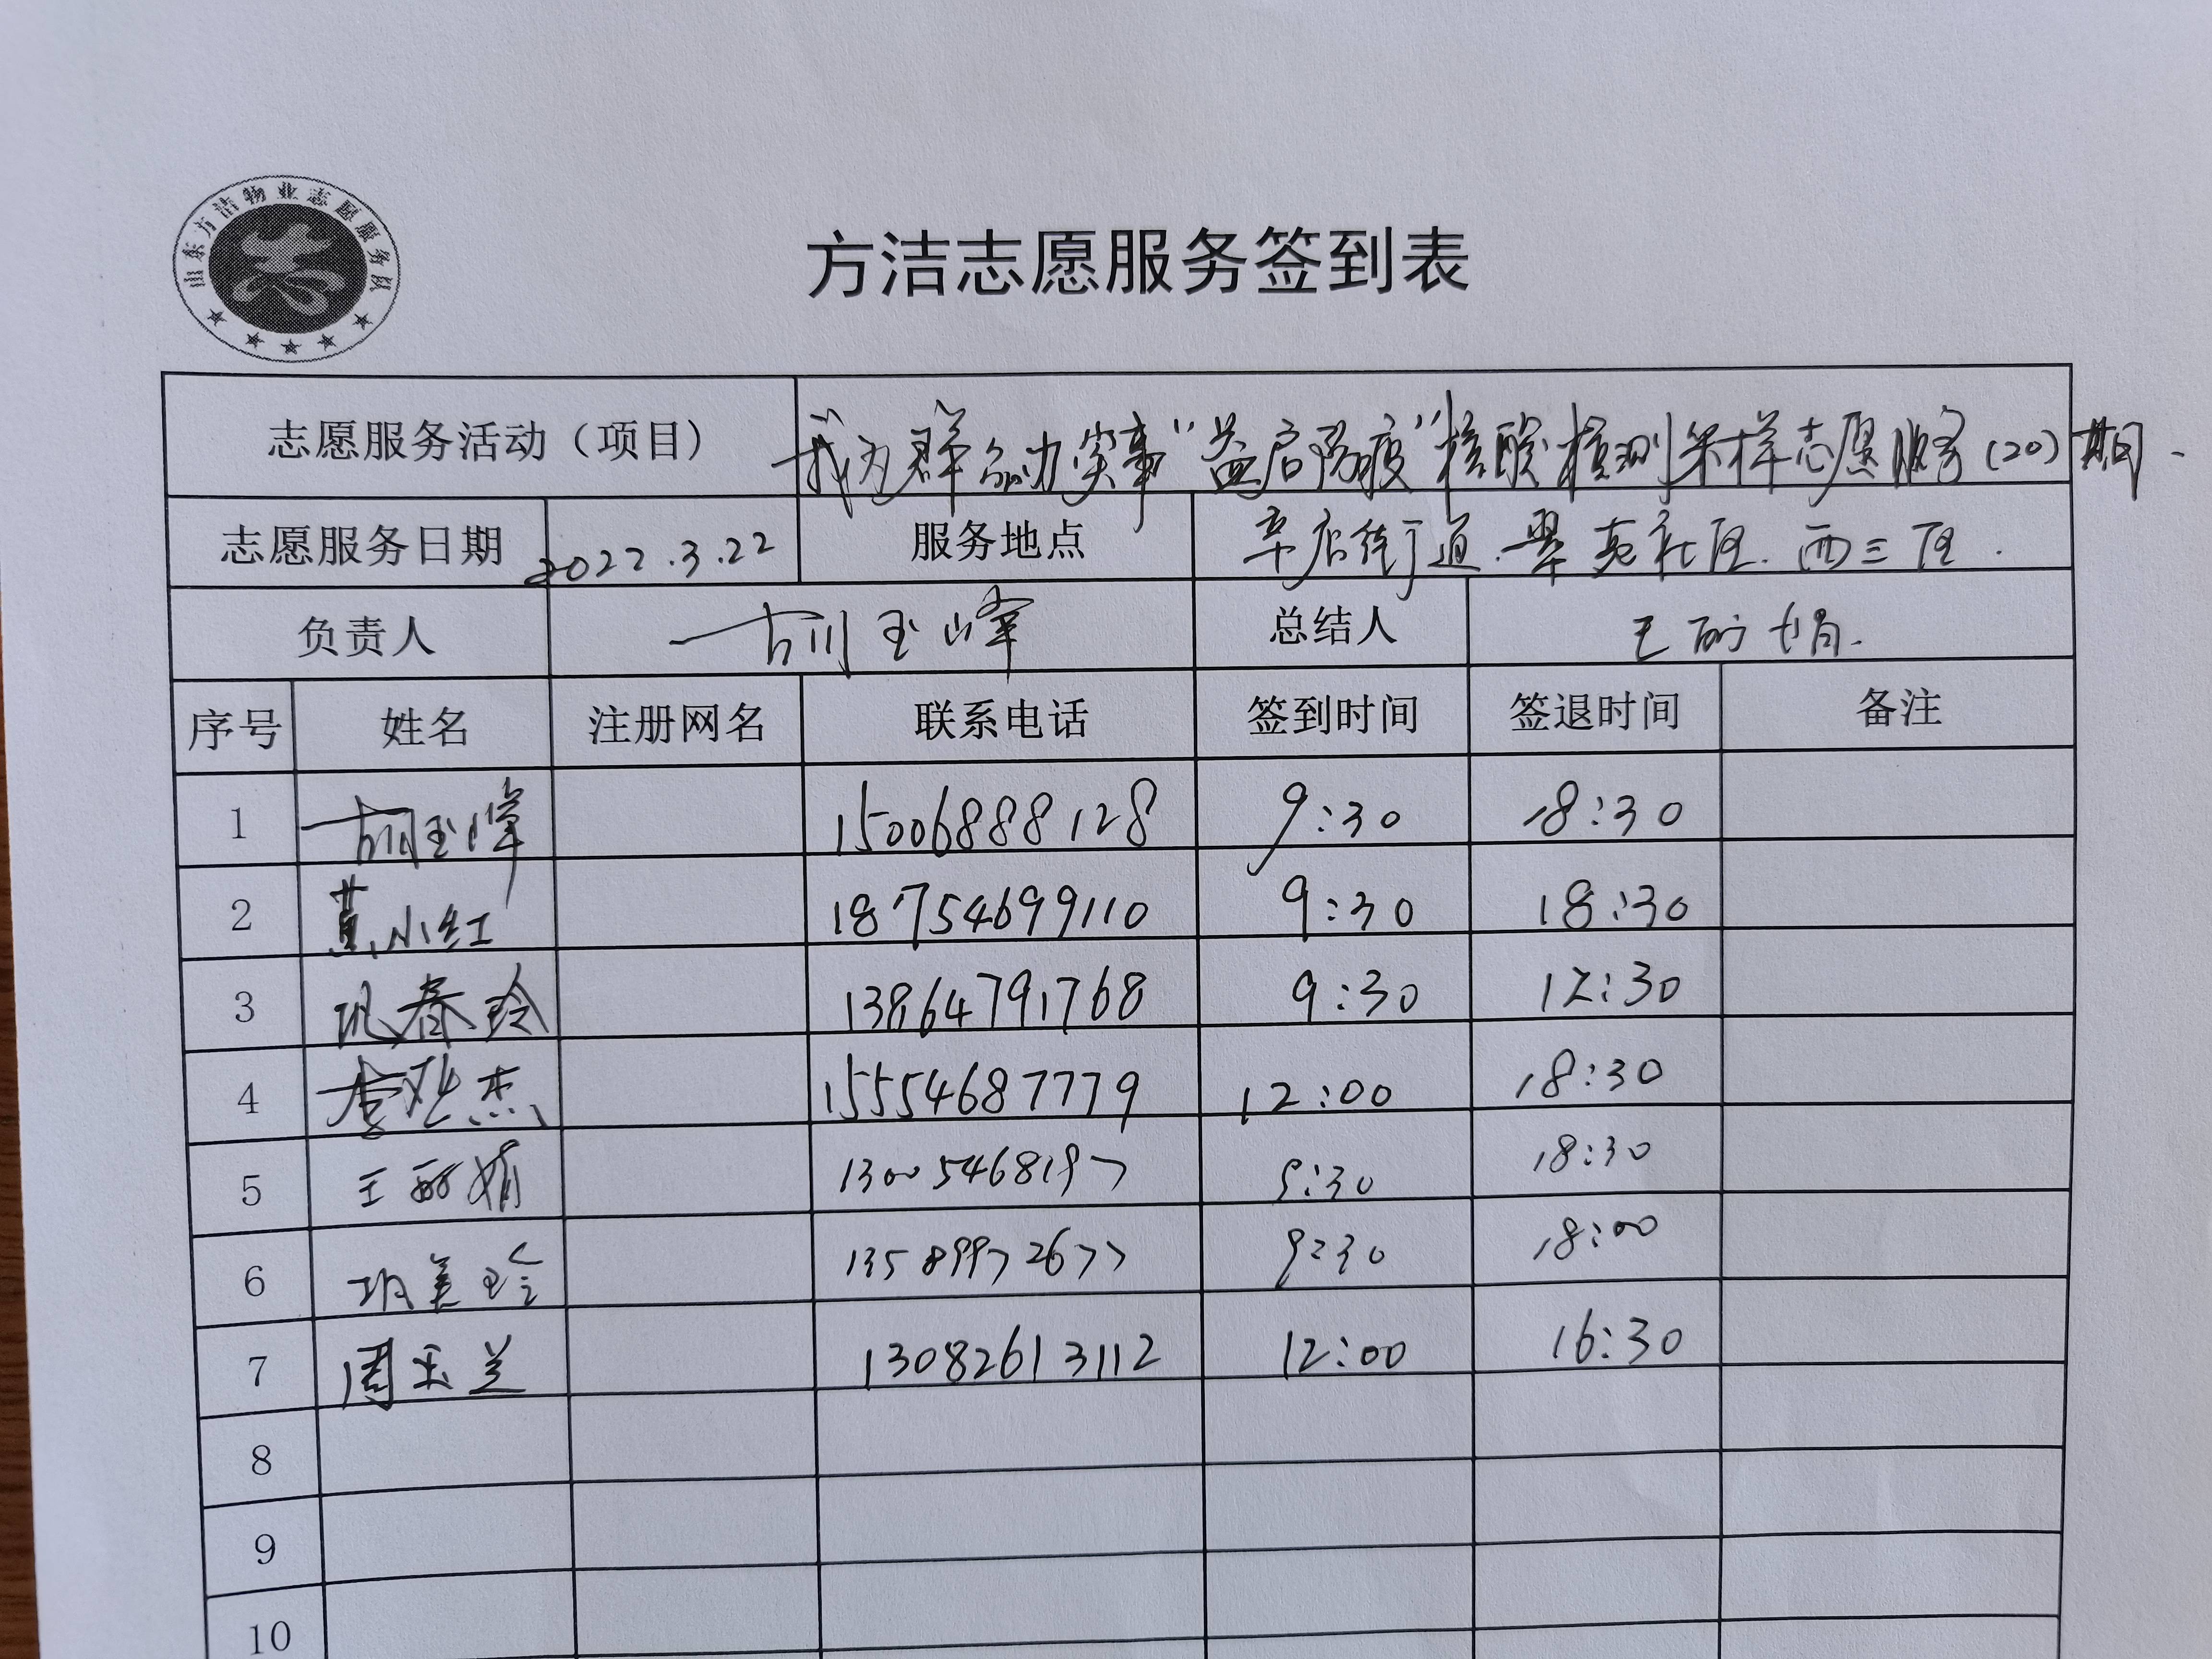 山东方洁物业志愿服务队
方洁志愿服务签到表
志愿服务活动（项目） 我为群众办实事“益启防疫”核酸检测采样志愿服务(20)期.
志愿服务日期 2022.3.22 服务地点 辛店街道.翠苑社区.西三区.
负责人 胡玉峰 总结人 王丽娟.
序号 姓名 注册网名 联系电话 签到时间 签退时间 备注
1 胡玉峰 15006888128 9:30 18:30
2 小红 18754699110 9:30 18:30
3 巩春玲 13864791768 9:30 12:30
4 杰 15554687779 12:00 18:30
5 王丽娟 13005468197 9:30 18:30
6 美玲 13589972677 9:30 18:00
7 周玉兰 13082613112 12:00 16:30
8
9
10